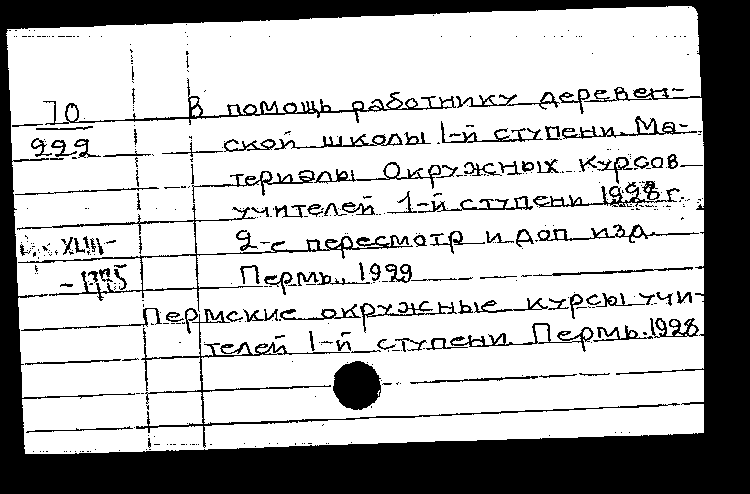 70
999
В помощь работнику деревен-
ской школы 1-й ступени. Ма-
териалы Окружных курсов
учителей 1-й ступени 1928 г.
2-е пересмотр и доп изд.
Пермь, 1929
XLIII-
-1775
Пермские окружные курсы учи-
телей 1-й ступени. Пермь. 1928